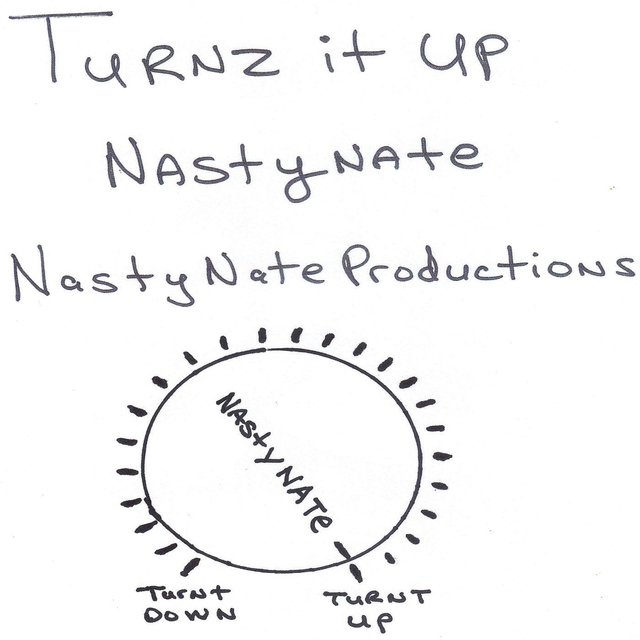 TURNZ it UP
NAStyNAte
NastyNateProductioNs
NAStyNATe
Turnt
DOWN
TURNT
UP